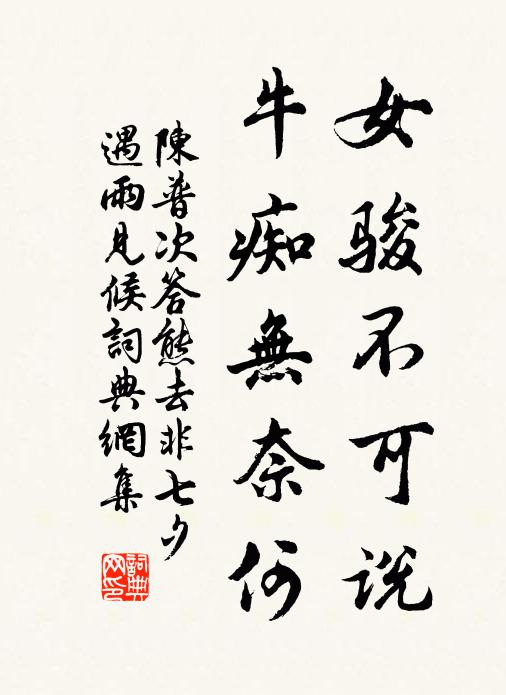 女骏不可说
牛痴無奈何
陳普次答熊去非七夕
遇雨見候詞典網集
詞典网印